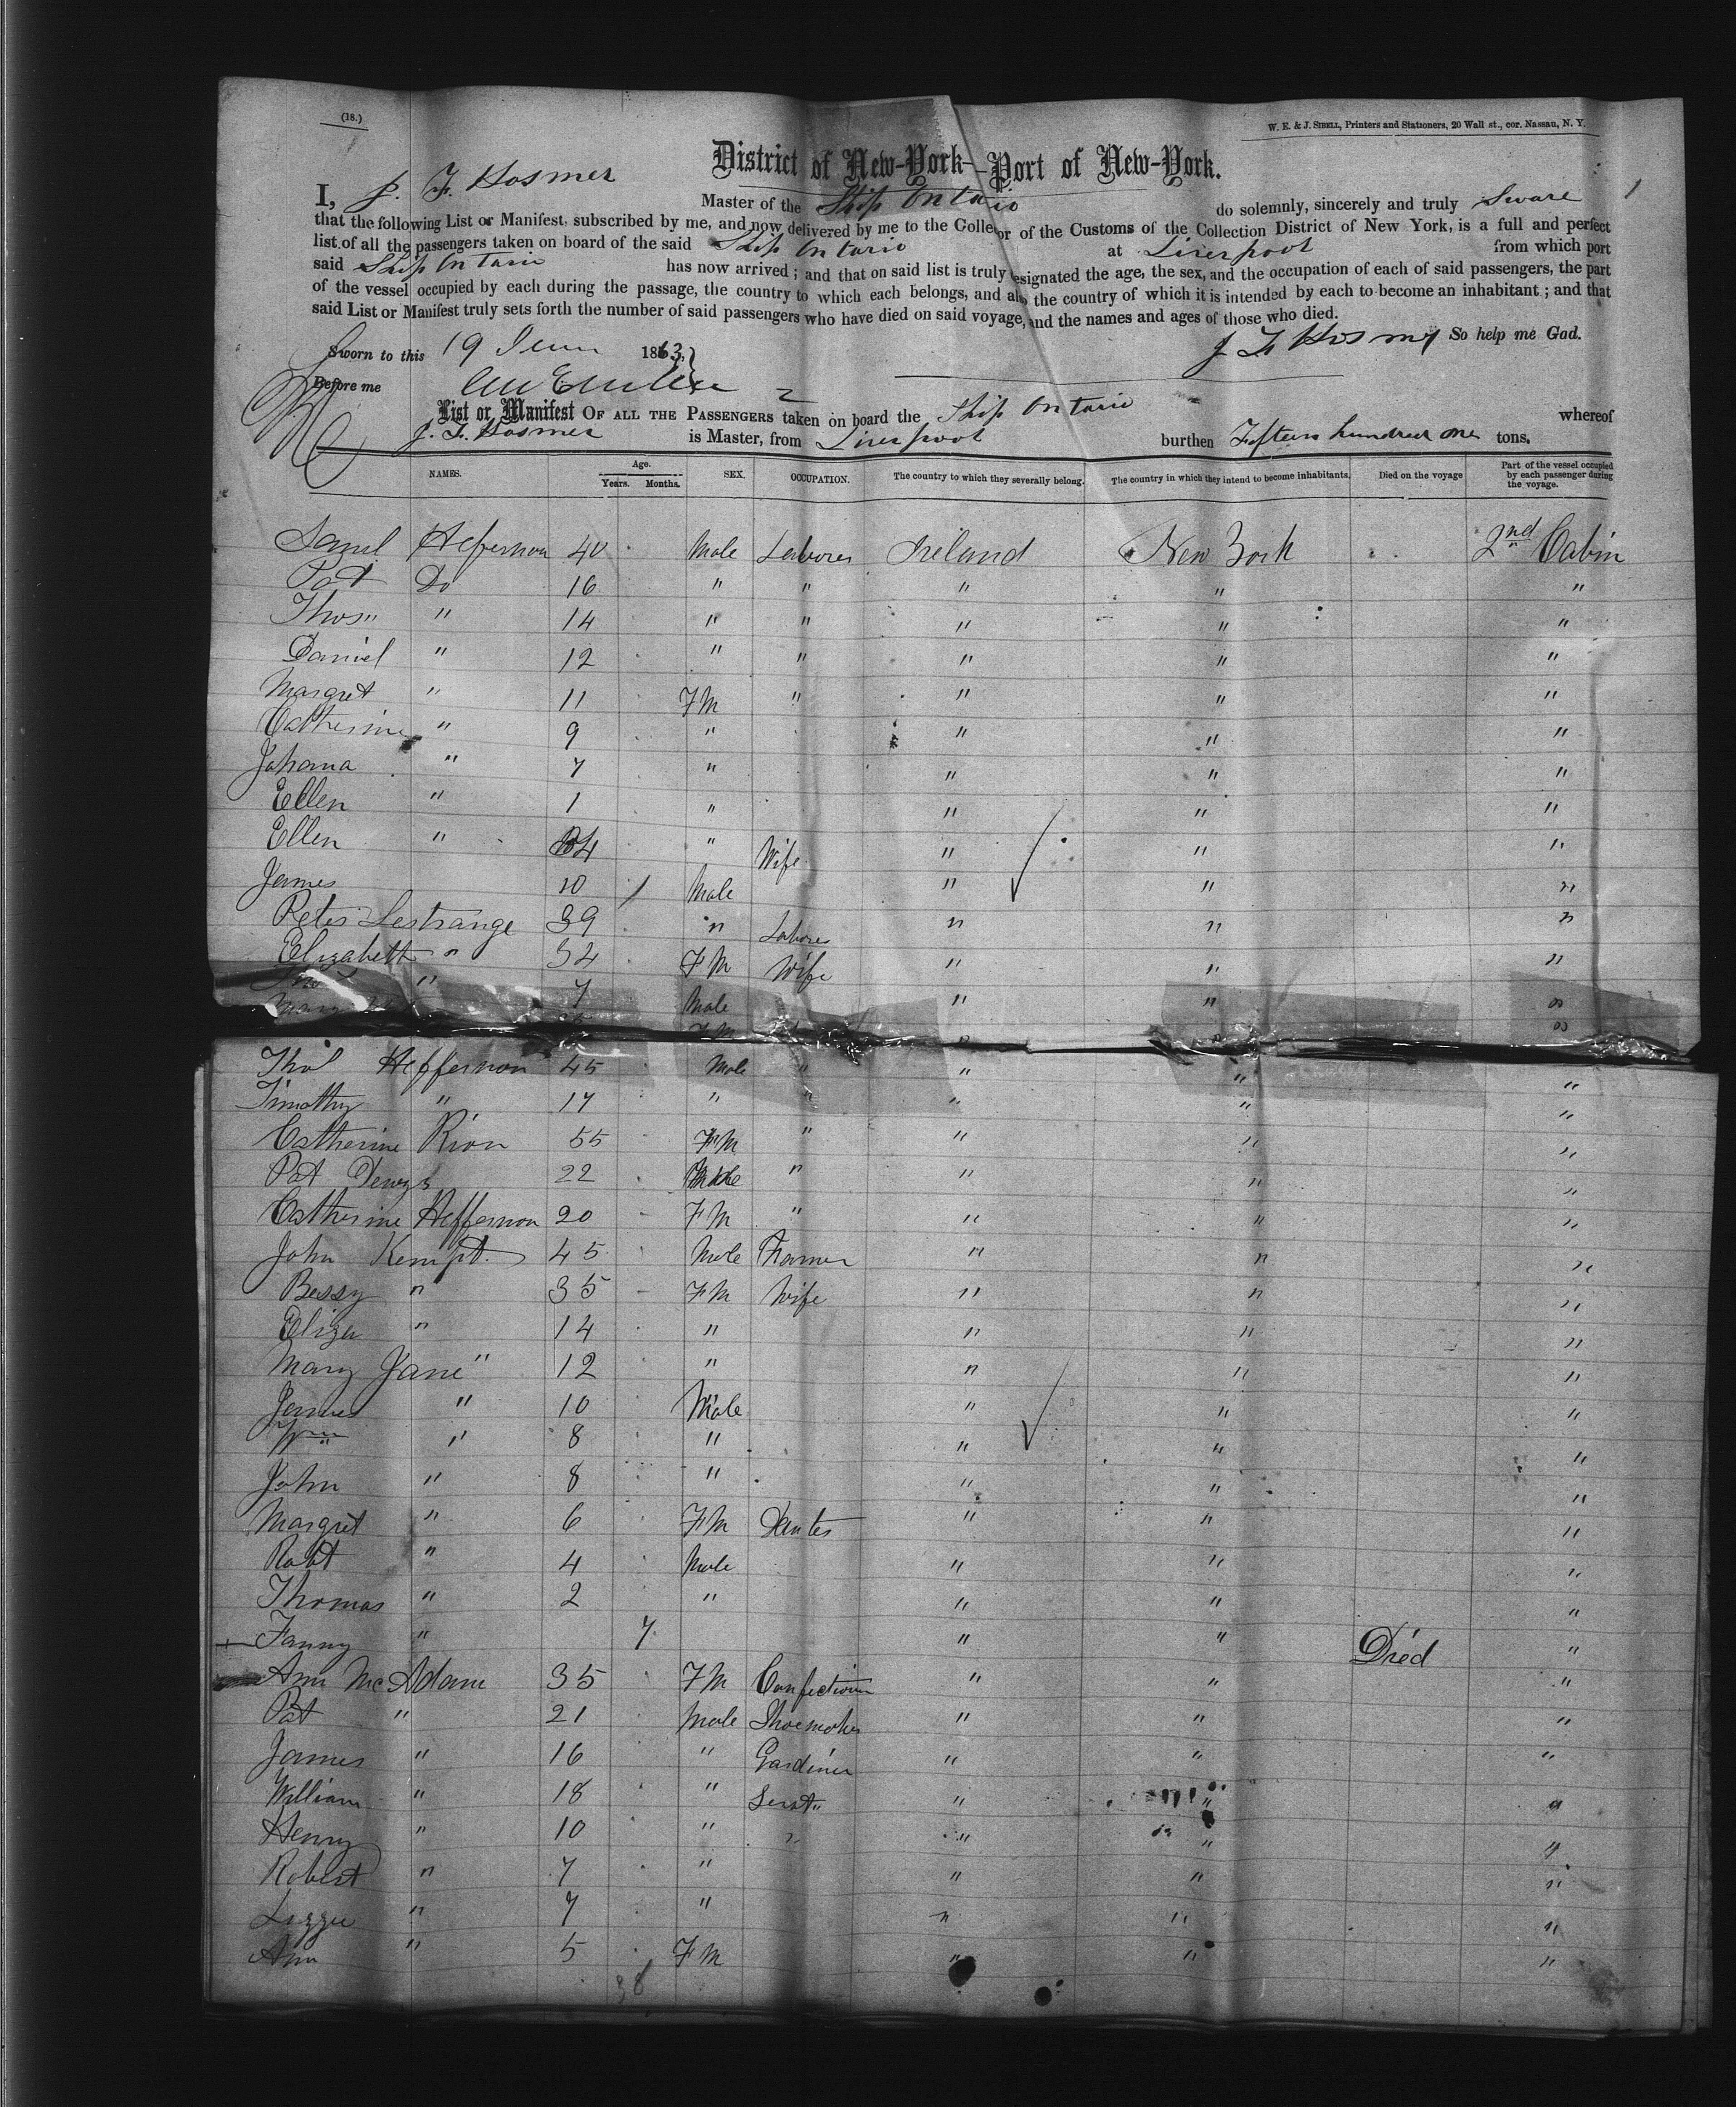 (18.)
W. E. & J. SIBELL, Printers and Stationers, 20 Wall st., cor. Nassau, N. Y.
District of New-York—Port of New-York.
1
I, J. F. Hosmer Master of the Ship Ontario do solemnly, sincerely and truly Sware
that the following List or Manifest, subscribed by me, and now delivered by me to the Colle or of the Customs of the Collection District of New York, is a full and perfect
list of all the passengers taken on board of the said Ship Ontario at Liverpool from which port
said Ship Ontario has now arrived; and that on said list is truly esignated the age, the sex, and the occupation of each of said passengers, the part
of the vessel occupied by each during the passage, the country to which each belongs, and als the country of which it is intended by each to become an inhabitant; and that
said List or Manifest truly sets forth the number of said passengers who have died on said voyage, and the names and ages of those who died.
J F Hosmer So help me God.
Sworn to this 19 June 1863,
Before me
List or Manifest OF ALL THE PASSENGERS taken on board the Ship Ontario whereof
J. F. Hosmer is Master, from Liverpool burthen Fifteen hundred one tons.
NAMES. Age. Years. Months. SEX. OCCUPATION. The country to which they severally belong. The country in which they intend to become inhabitants. Died on the voyage Part of the vessel occupied by each passenger during the voyage.
Saml Hefernon 40 Male Laborer Ireland New York 2nd Cabin
Pat Do 16 " " " " "
Thos " 14 " " " " "
Daniel " 12 " " " " "
Margret " 11 FM " " " "
Catherine " 9 " " " "
Johana " 7 " " " "
Ellen " 1 " " " "
Ellen " 34 " Wife " " "
James 10 Male " " "
Peter Lestrange 39 " Laborer " " "
Elizabeth " 34 FM Wife " " "
Thos " 7 Male " " "
FM " " "
Thos Heffernon 45 Male " " " "
Timothy " 17 " " " " "
Catherine Rion 55 FM " " " "
Pat 22 Male " " " "
Catherine Heffernon 20 FM " " " "
John Kempt. 45 Male Farmer " " "
Bessy " 35 FM Wife " " "
Eliza " 14 " " " "
Mary Jane " 12 " " " "
James " 10 Male " " "
Wm " 8 " " " "
John " 8 " " " "
Margret " 6 FM " " "
Robt " 4 Male " " "
Thomas " 2 " " " "
Fanny " 7 " " Died "
Ann McAdam 35 FM Confectioner " " "
Pat " 21 Male Shoemaker " " "
James " 16 " Gardiner " " "
William " 18 " Servt " " "
Henry " 10 " " " " "
Robert " 7 " " " "
Lizzie " 7 " " " "
Ann " 5 FM " " "
38